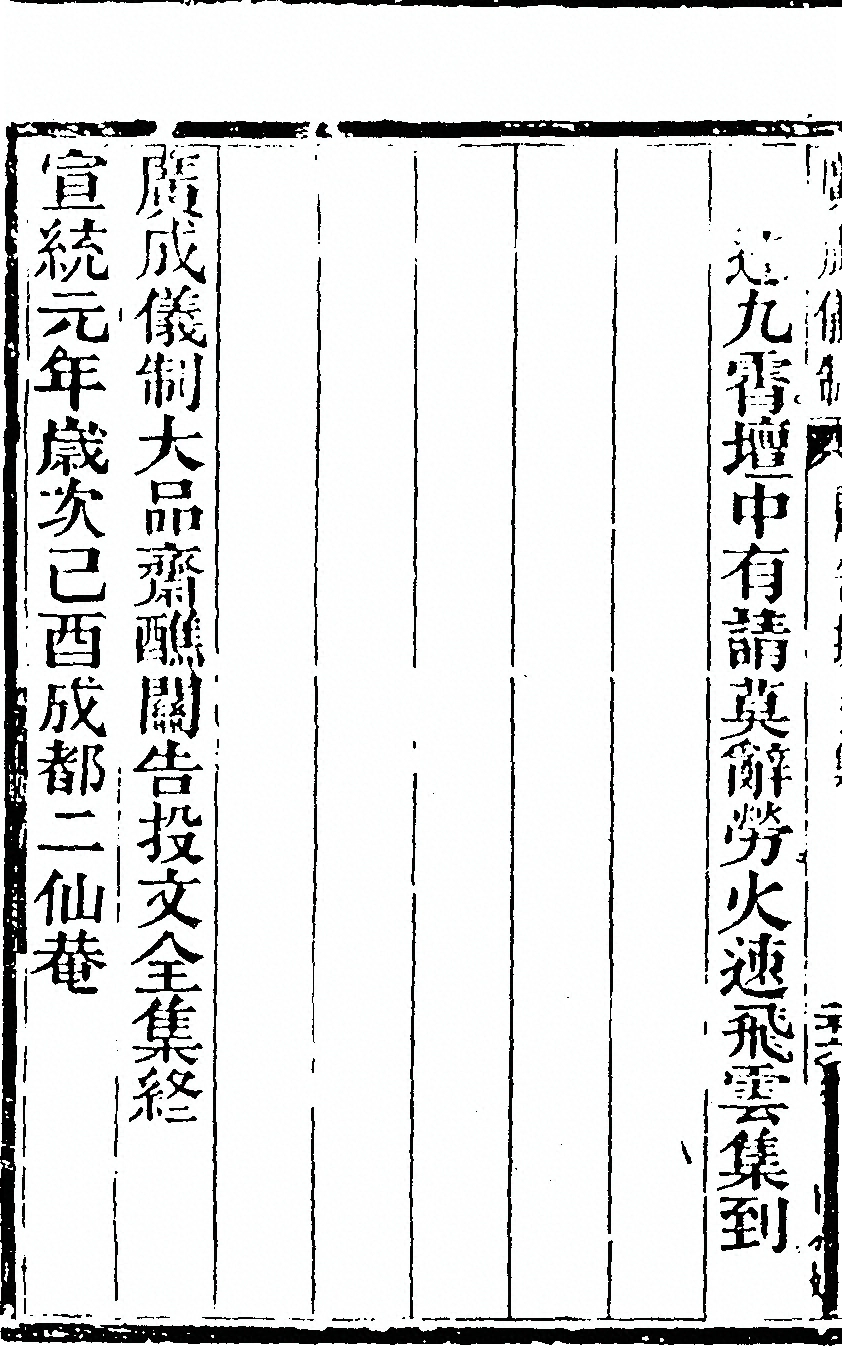 達九霄壇中有請莫辭勞火速飛雲集到
廣成儀制大品齋醮關告投文全集終
宣統元年歲次己酉成都二仙菴